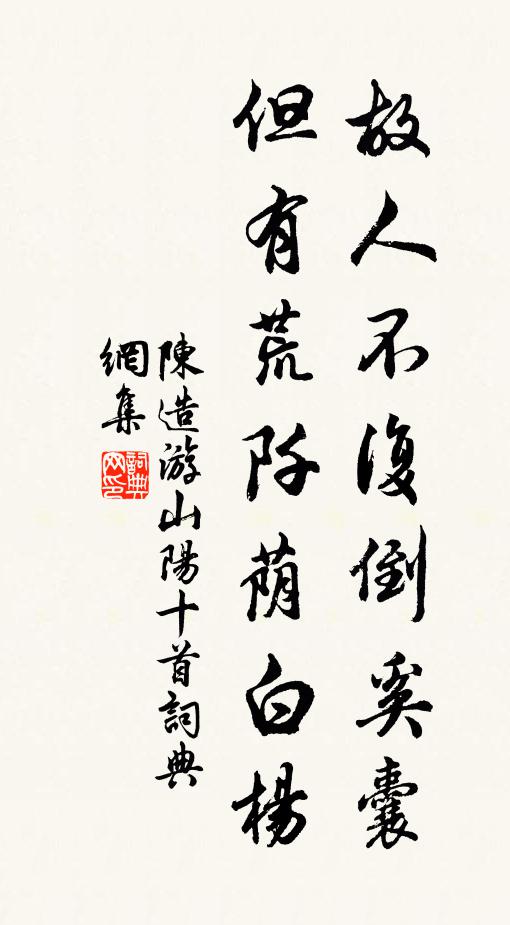 故人不復倒奚囊
但有荒阡荫白楊
陳造游山陽十首詞典
網集
詞典
网印